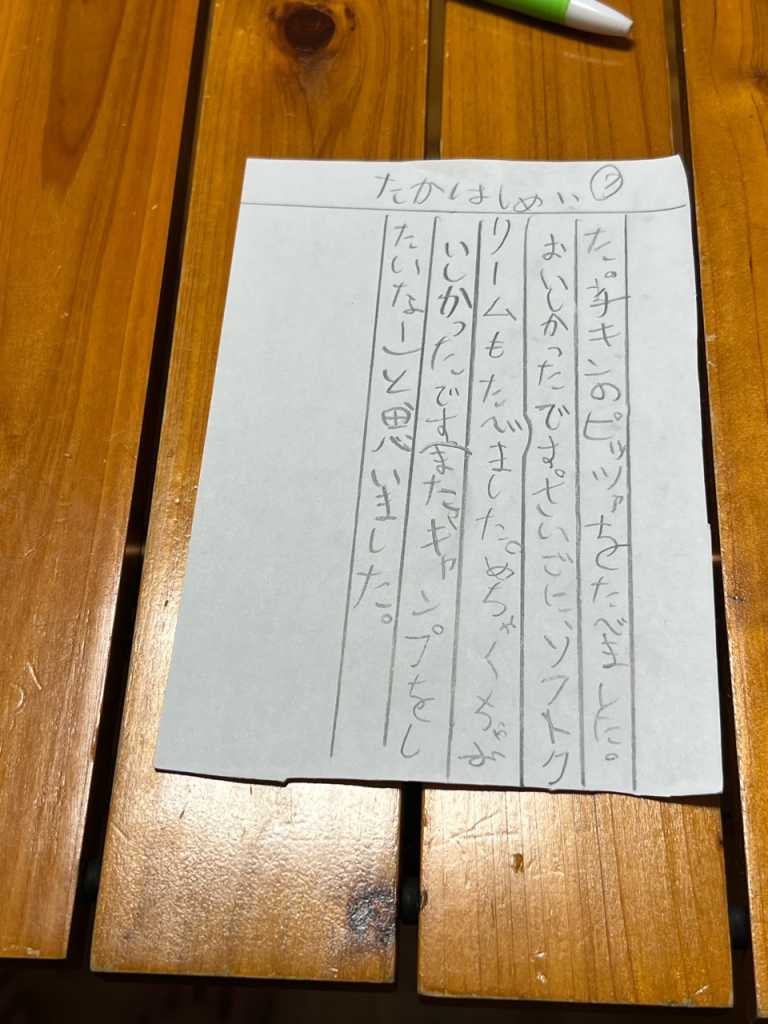 たかはしめい ②
た。チキンのピッツァをたべました。
おいしかったです。さいごに、ソフトク
リームもたべました。めちゃくちゃお
いしかったです。またキャンプをし
たいなーと思いました。